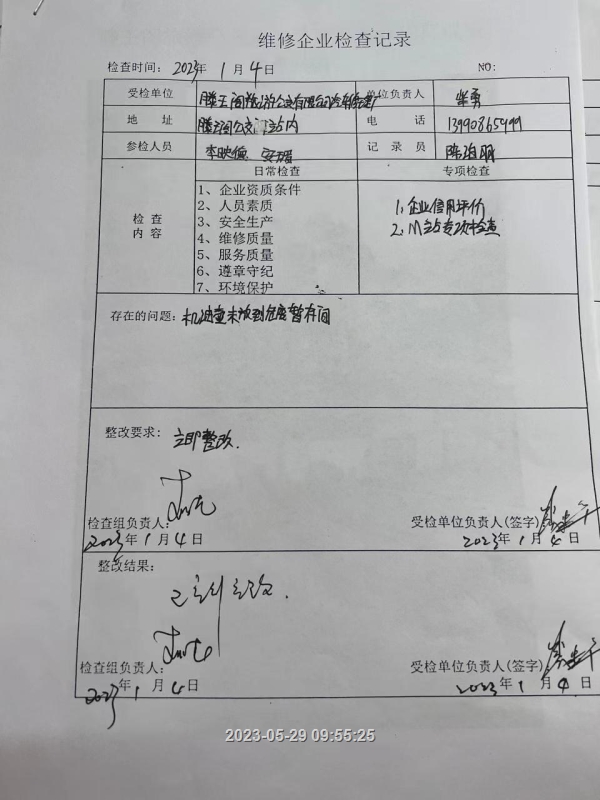 维修企业检查记录
检查时间: 2023年 1月 4日 NO:
受检单位 滕王阁旅游公交有限公司 单位负责人
地 址 滕王阁公交 站内 电 话 13990865499
参检人员 李映俭 记录员 陈泊朋
检查内容 日常检查 专项检查
1、企业资质条件
2、人员素质
3、安全生产
4、维修质量
5、服务质量
6、遵章守纪
7、环境保护
1、企业信用评价
2、M站专项检查
存在的问题: 机油壶未放到危废暂存间
整改要求: 立即整改.
检查组负责人: 受检单位负责人(签字)
2023年1月4日 2023年1月4日
整改结果:
已立即整改.
检查组负责人: 受检单位负责人(签字)
2023年1月4日 2023年1月4日
2023-05-29 09:55:25